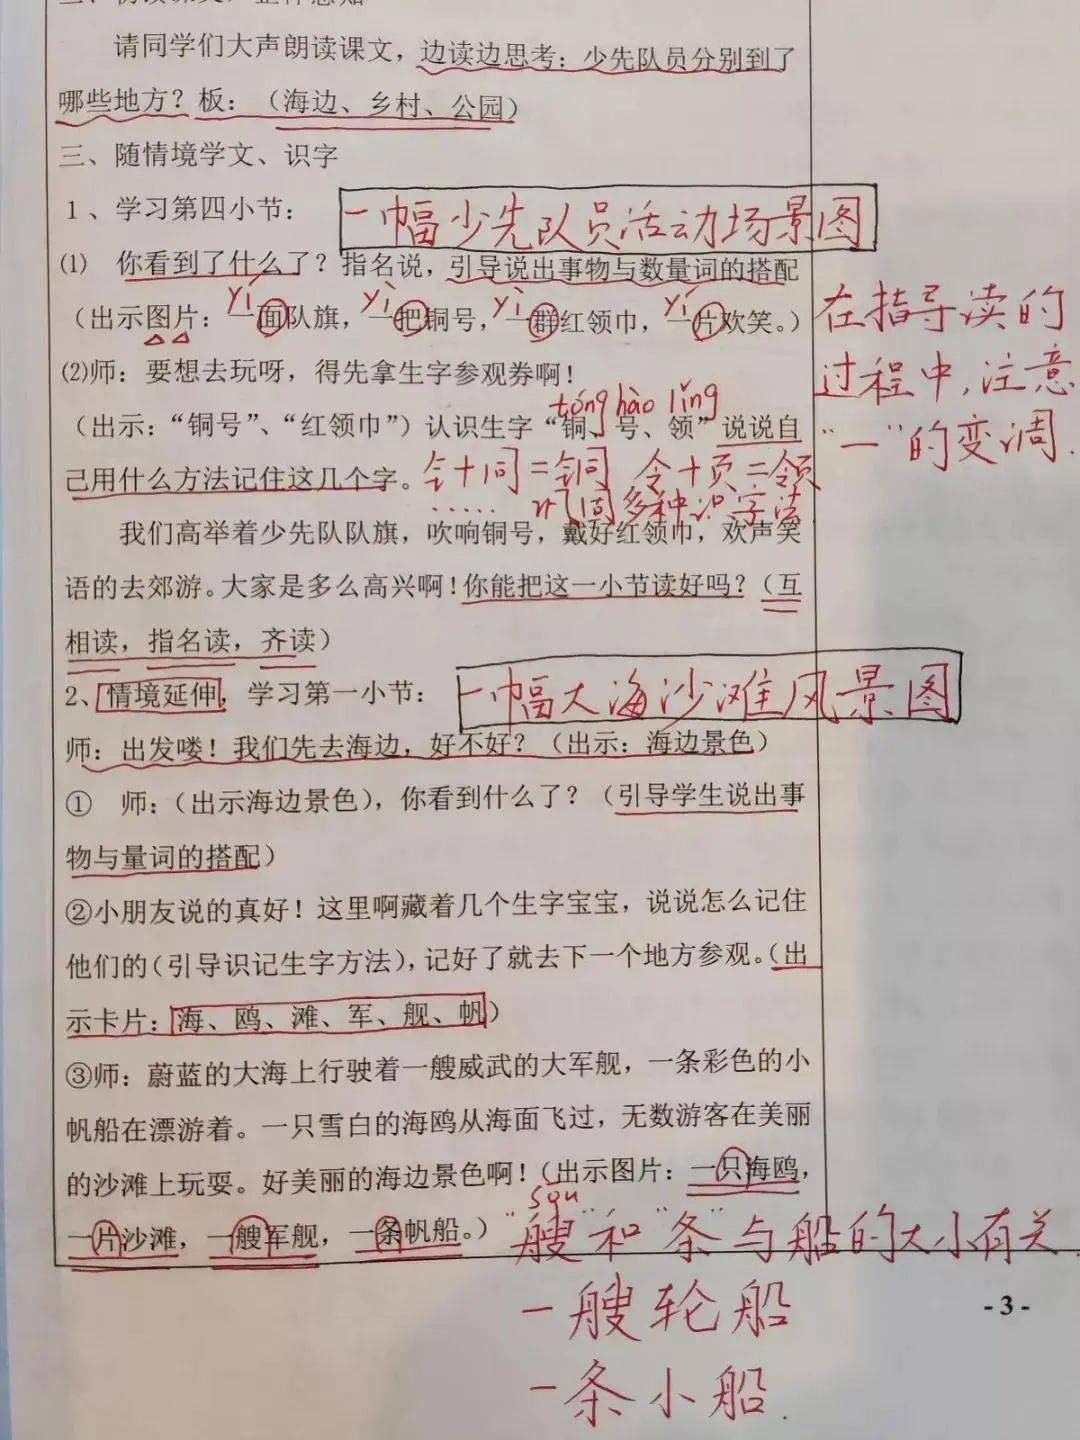 请同学们大声朗读课文，边读边思考：少先队员分别到了
哪些地方？板：（海边、乡村、公园）
三、随情境学文、识字
1、学习第四小节：
一幅少先队员活动场景图
⑴ 你看到了什么了？指名说，引导说出事物与数量词的搭配
yí yì yì yí
（出示图片：一面队旗，一把铜号，一群红领巾，一片欢笑。）
在指导读的
过程中，注意
“一”的变调.
⑵师：要想去玩呀，得先拿生字参观券啊！
tóng hào lǐng
（出示：“铜号”、“红领巾”）认识生字“铜、号、领”说说自
己用什么方法记住这几个字。
钅十同＝铜 令十页＝领
巩固多种识字法
我们高举着少先队队旗，吹响铜号，戴好红领巾，欢声笑
语的去郊游。大家是多么高兴啊！你能把这一小节读好吗？（互
相读，指名读，齐读）
2、情境延伸，学习第一小节：
一幅大海沙滩风景图
师：出发喽！我们先去海边，好不好？（出示：海边景色）
① 师：（出示海边景色），你看到什么了？（引导学生说出事
物与量词的搭配）
②小朋友说的真好！这里啊藏着几个生字宝宝，说说怎么记住
他们的（引导识记生字方法），记好了就去下一个地方参观。（出
示卡片：海、鸥、滩、军、舰、帆）
③师：蔚蓝的大海上行驶着一艘威武的大军舰，一条彩色的小
帆船在漂游着。一只雪白的海鸥从海面飞过，无数游客在美丽
的沙滩上玩耍。好美丽的海边景色啊！（出示图片：一只海鸥，
一片沙滩，一艘军舰，一条帆船。）
sōu
“艘”和“条”与船的大小有关
一艘轮船
一条小船.
- 3 -